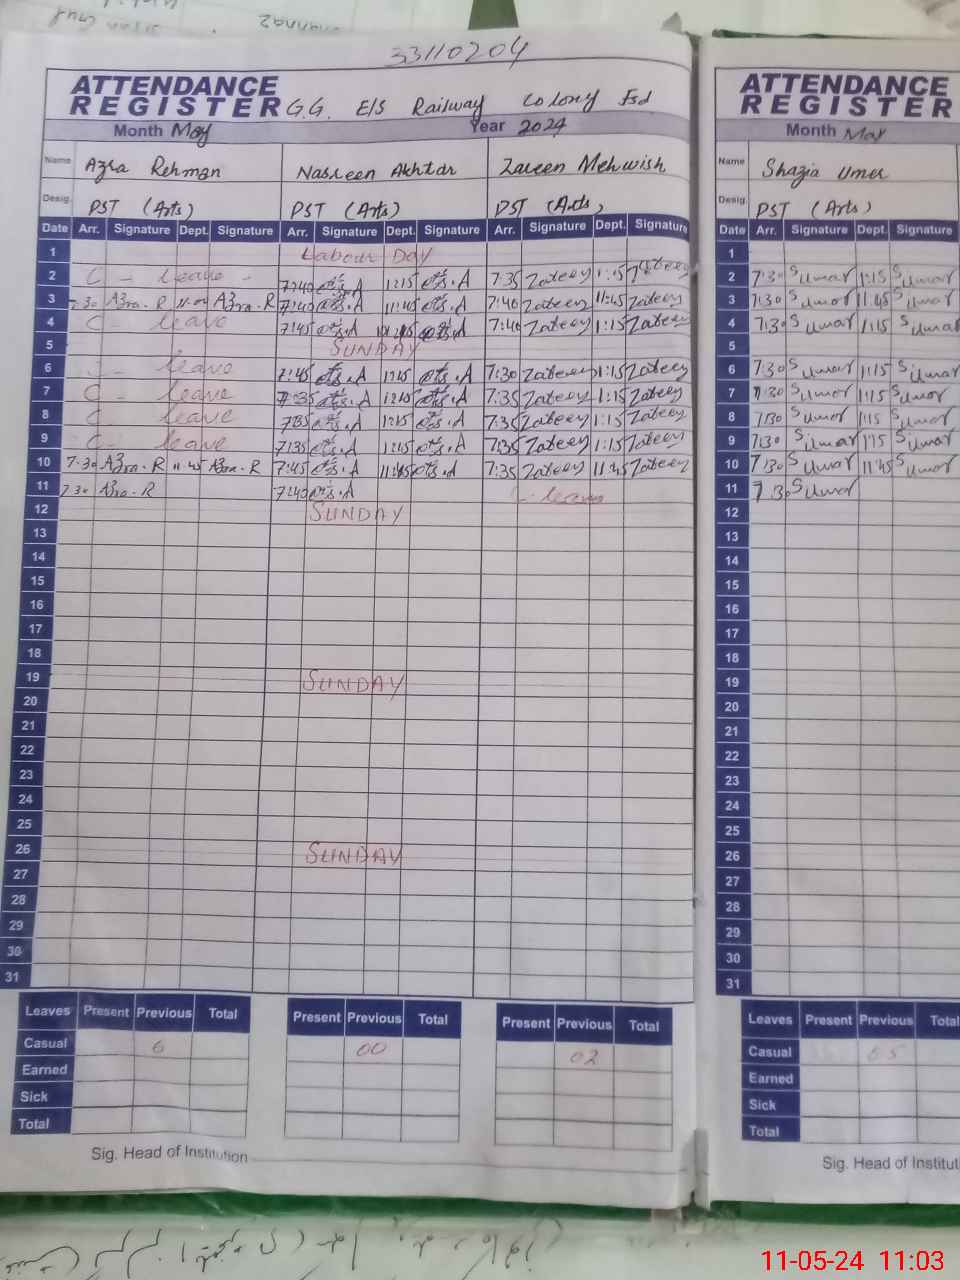 33110204
ATTENDANCE
REGISTER G.G. E/S Railway Colony Fsd
Month May Year 2024
Name Azra Rehman Nasreen Akhtar Zareen Mehwish
Desig. PST (Arts) PST (Arts) PST (Arts)
Date Arr. Signature Dept. Signature Arr. Signature Dept. Signature Arr. Signature Dept. Signature
1 Labour Day
2 C - leave - 7:40 .A 12:15 .A 7:35 Zareen 1:15 Zareen
3 7:30 Azra.R 11:00 Azra.R 7:40 .A 11:45 .A 7:40 Zareen 11:45 Zareen
4 C - leave 7:45 .A .A 7:40 Zareen 1:15 Zareen
5 SUNDAY
6 leave 7:45 .A 1:15 .A 7:30 Zareen 1:15 Zareen
7 C leave 7:35 .A 12:15 .A 7:35 Zareen 1:15 Zareen
8 C leave 7:35 .A 12:15 .A 7:35 Zareen 1:15 Zareen
9 C - leave 7:35 .A 12:15 .A 7:35 Zareen 1:15 Zareen
10 7:30 Azra.R 11:45 Azra.R 7:45 .A 11:45 .A 7:35 Zareen 11:45 Zareen
11 7:30 Azra.R 7:40 .A C leave
12 SUNDAY
13
14
15
16
17
18
19 SUNDAY
20
21
22
23
24
25
26 SUNDAY
27
28
29
30
31
Leaves Present Previous Total Present Previous Total Present Previous Total
Casual 6 00 02
Earned
Sick
Total
Sig. Head of Institution
ATTENDANCE
REGISTER
Month May
Name Shazia Umer
Desig. PST (Arts)
Date Arr. Signature Dept. Signature
1
2 7:30 S Umar 1:15 S Umar
3 7:30 S Umar 11:45 S Umar
4 7:30 S Umar 1:15 S Umar
5
6 7:30 S Umar 1:15 S Umar
7 7:30 S Umar 1:15 S Umar
8 7:30 S Umar 1:15 S Umar
9 7:30 S Umar 1:15 S Umar
10 7:30 S Umar 11:45 S Umar
11 7:30 S Umar
12
13
14
15
16
17
18
19
20
21
22
23
24
25
26
27
28
29
30
31
Leaves Present Previous Total
Casual 05
Earned
Sick
Total
Sig. Head of Institut
11-05-24 11:03